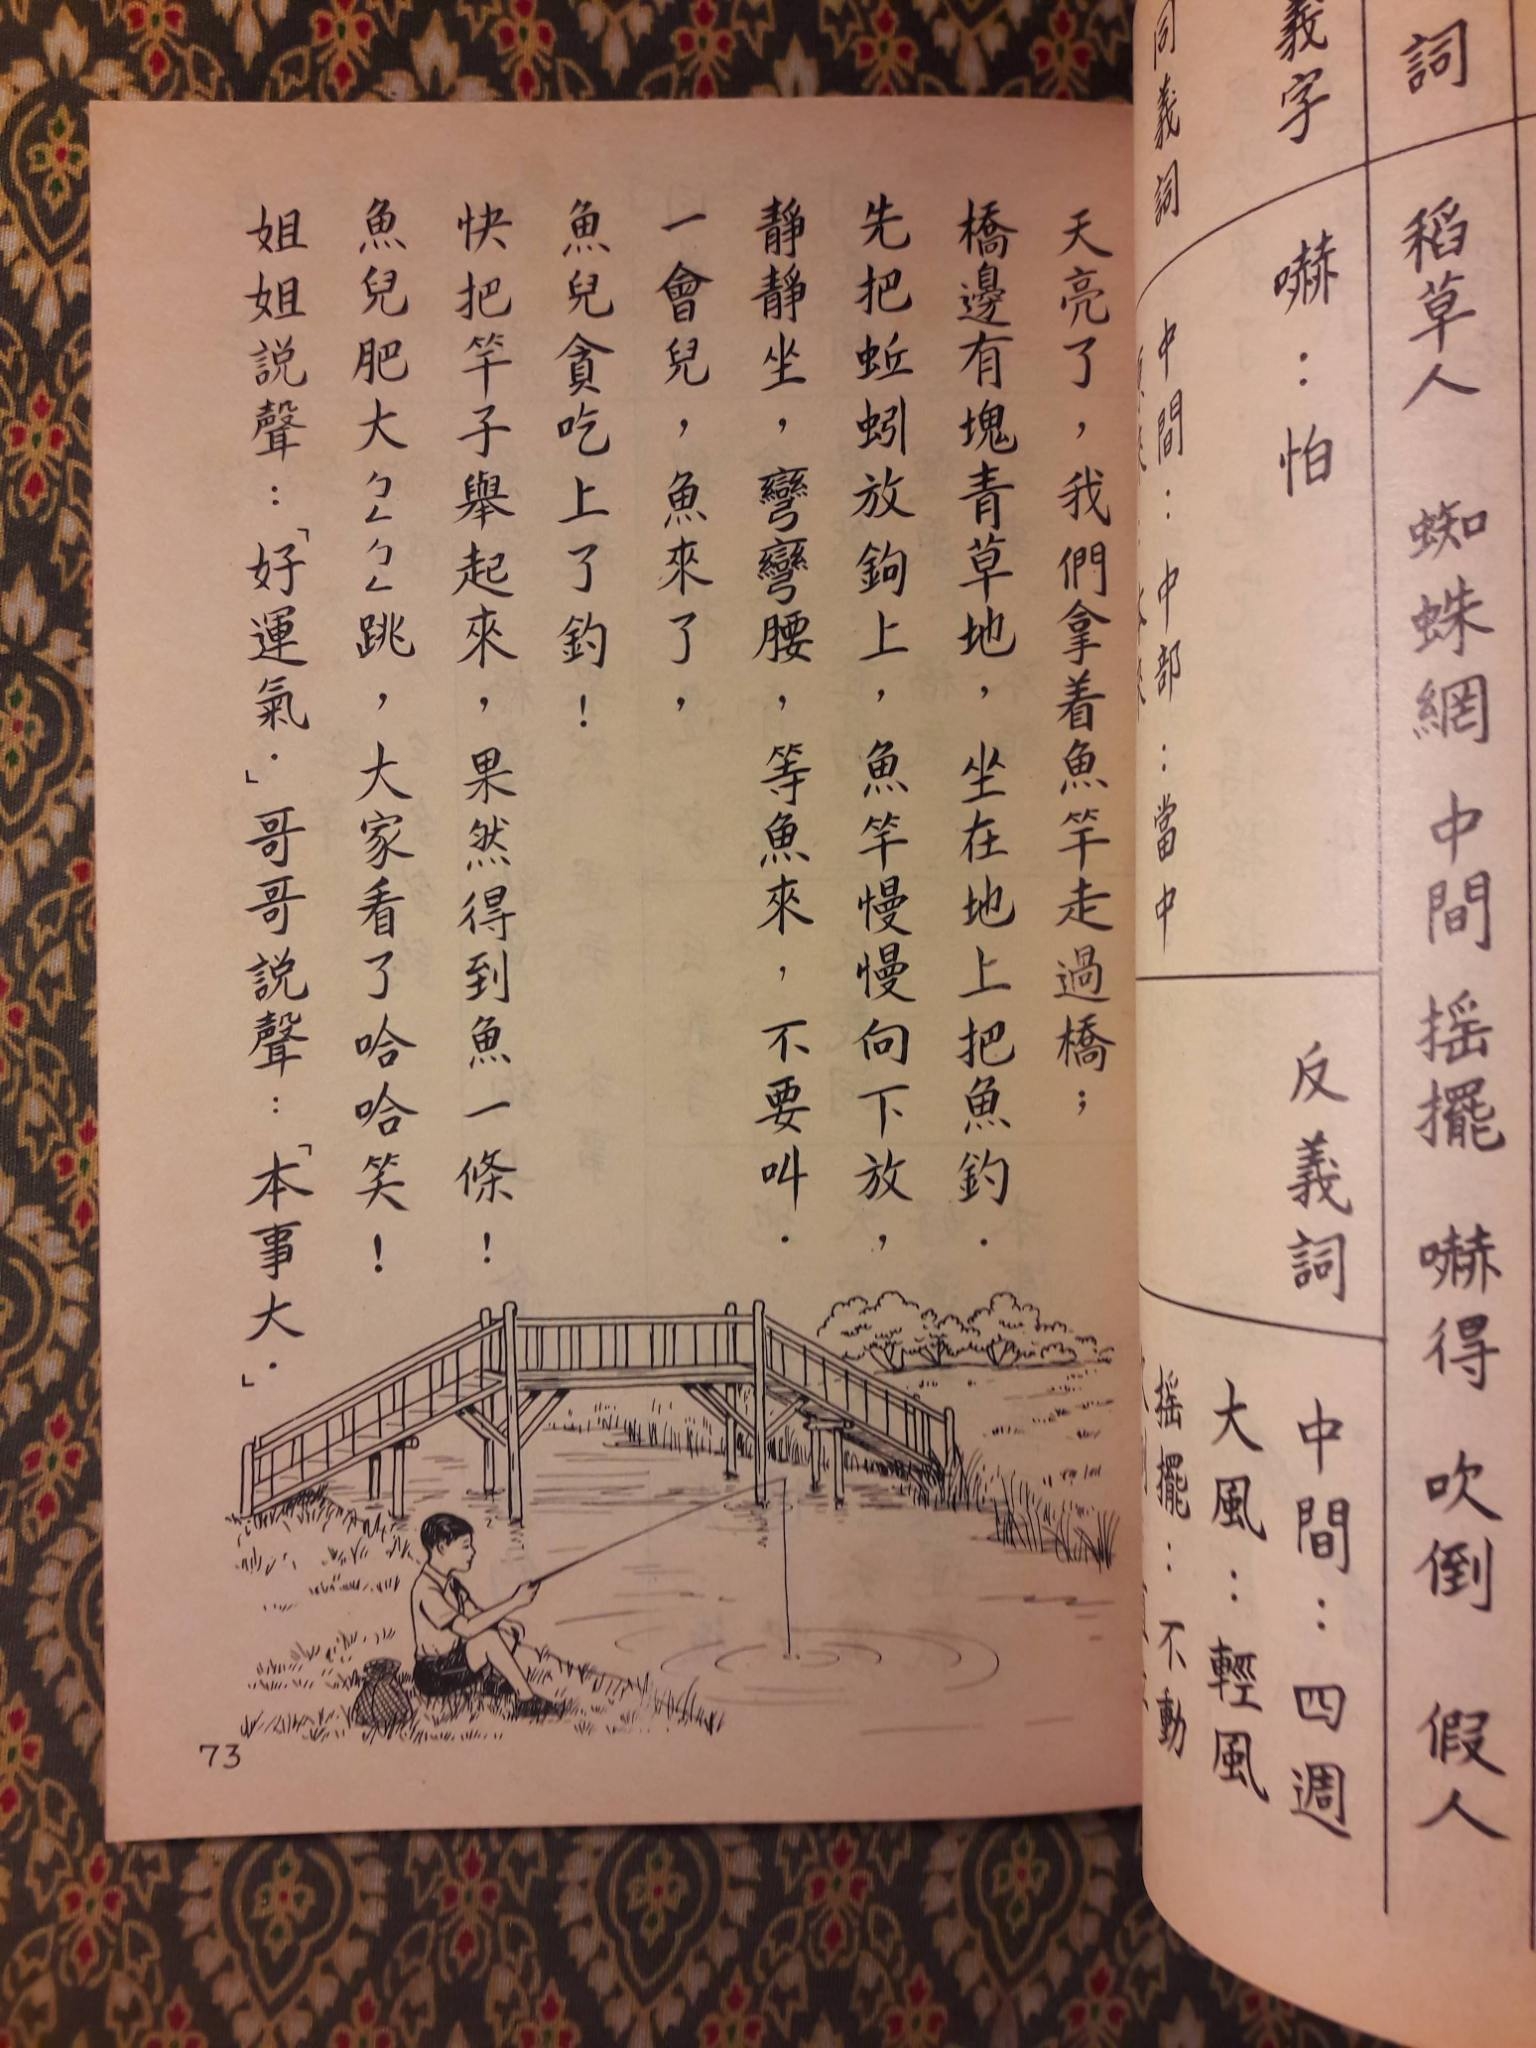 詞
稻草人 蜘蛛網 中間 搖擺 嚇得 吹倒 假人
義字
嚇：怕
反義詞
中間：四週
大風：輕風
同義詞
中間：中部：當中
搖擺：不動
天亮了，我們拿着魚竿走過橋；
橋邊有塊青草地，坐在地上把魚釣．
先把蚯蚓放鉤上，魚竿慢慢向下放，
靜靜坐，彎彎腰，等魚來，不要叫．
一會兒，魚來了，
魚兒貪吃上了釣！
快把竿子舉起來，果然得到魚一條！
魚兒肥大ㄅㄥㄅㄥ跳，大家看了哈哈笑！
姐姐説聲：「好運氣．」哥哥説聲：「本事大．」
73